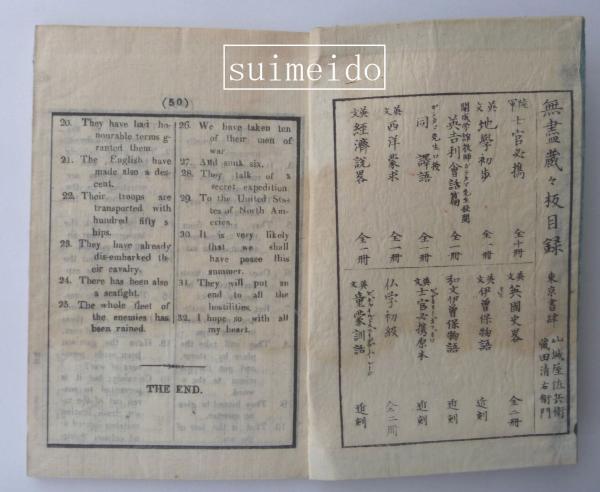 suimeido
(50)
20. They have had ho-
nourable terms g-
ranted them.
21. The English have
made also a des-
cent.
22. Their troops are
transported with
hundred fifty s-
hips.
23. They have already
dis-embarked th-
eir cavalry.
24. There has been also
a seafight.
25. The whole fleet of
the enemies has
been ruined.
26. We have taken ten
of their men of
war.
27. And sunk six.
28. They talk of a
secret expedition
29. To the United Sta-
tes of North Am-
erica.
30. It is very likely
that we shall
have peace this
summer.
31. They will put an
end to all the
hostilities.
32. I hope so with all
my heart.
THE END.
無盡蔵々板目録
東京書肆
山城屋佐兵衛
萬田清右衛門
陸軍士官必携 全十冊
英文地學初歩 全一冊
英吉利會話篇 全一冊
同譯語 全一冊
英文西洋蒙求 全一冊
英文經濟説畧 全一冊
英文英國史畧 全二冊
英文伊曽保物語 近刻
和文伊曽保物語 近刻
英文士官必携原本 近刻
仏学初級 全二冊
英文童蒙訓話 近刻